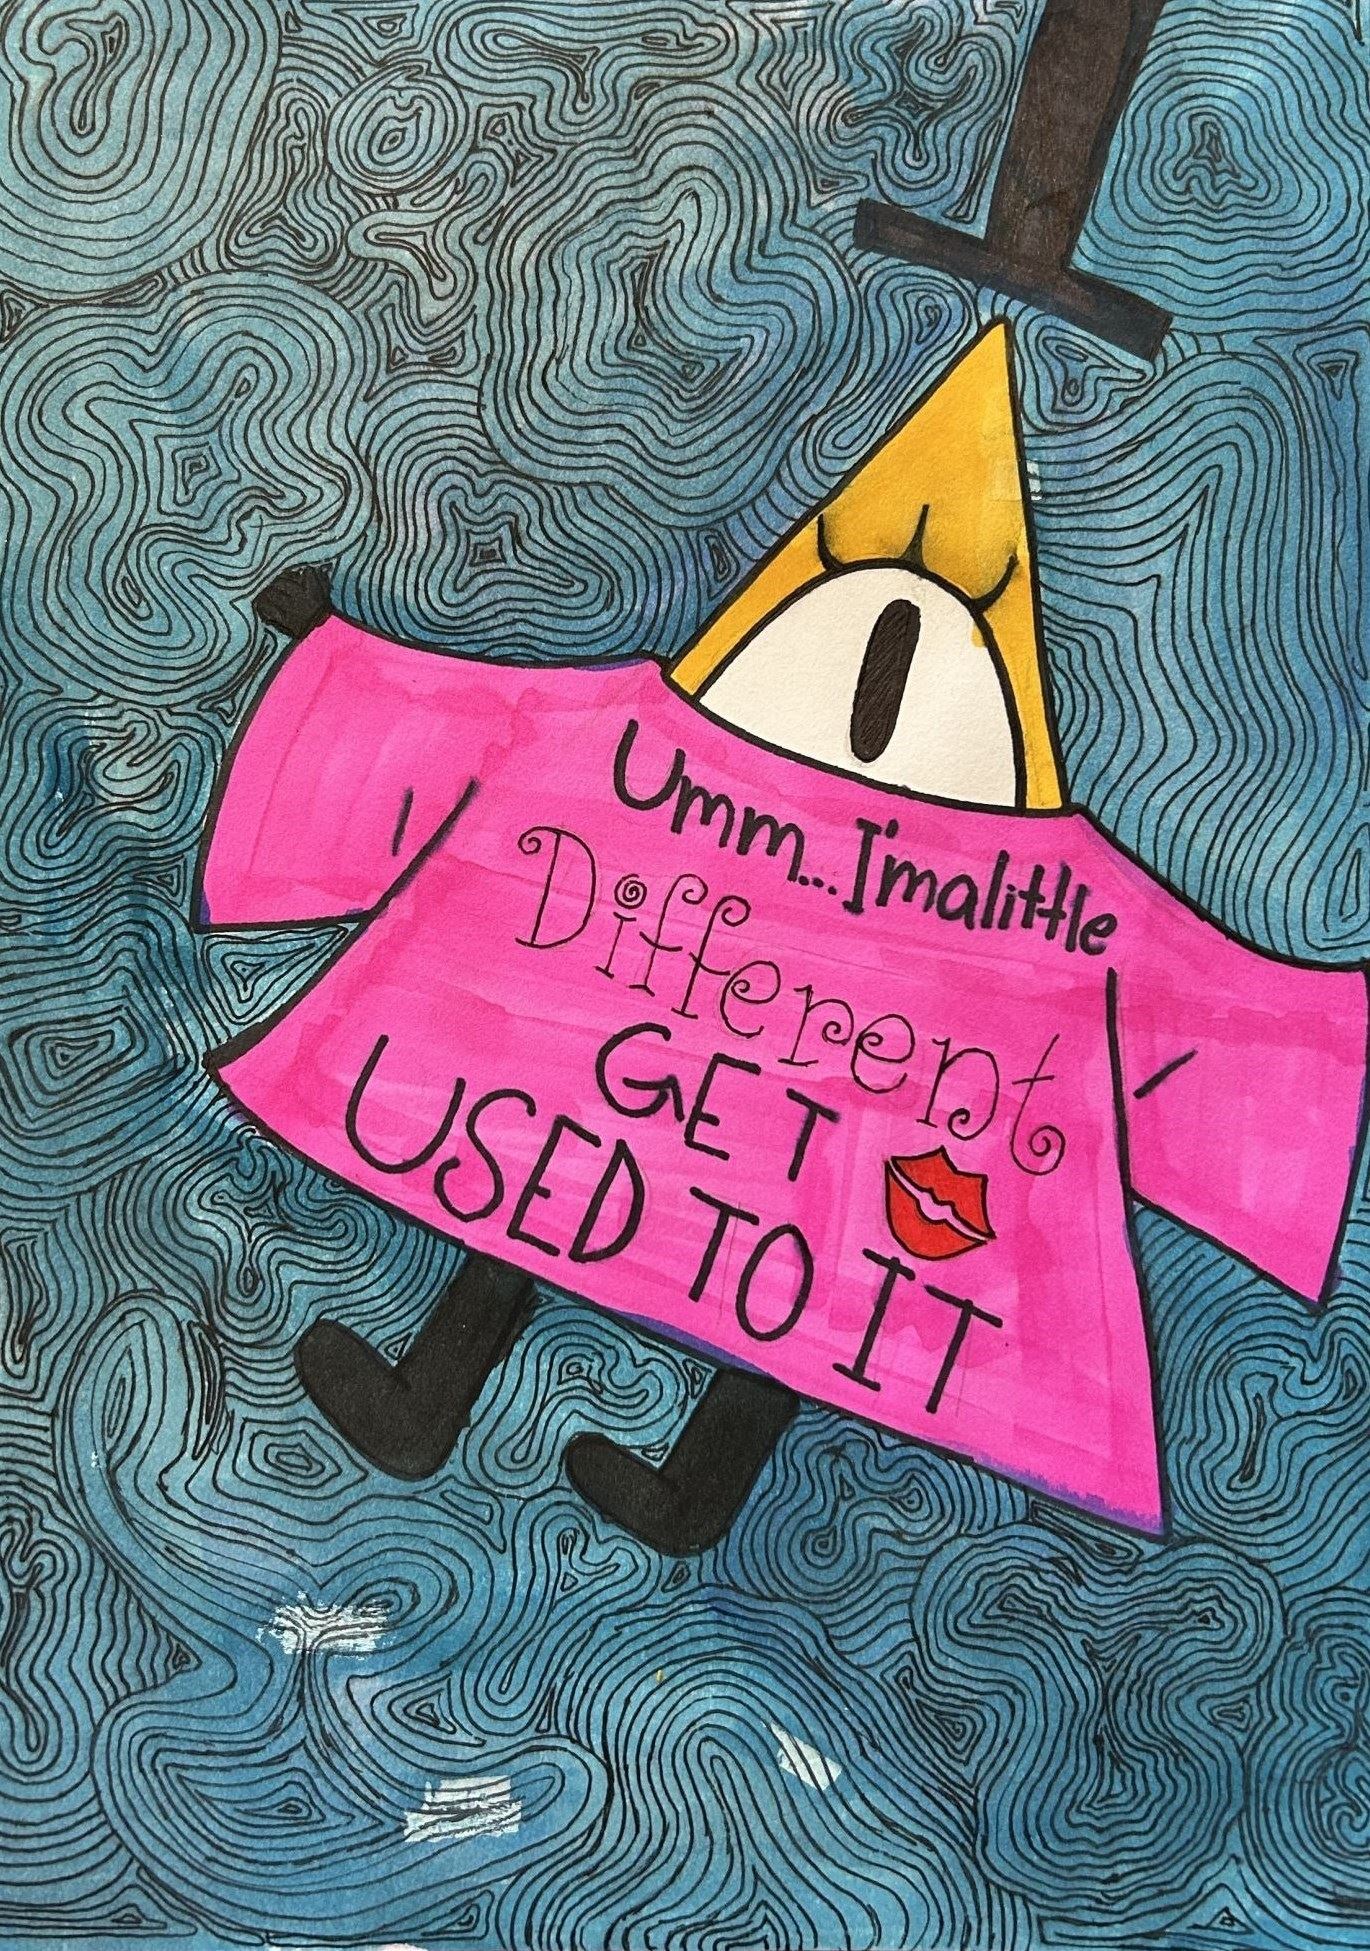 Umm... I'm a little
Different
GET
USED TO IT